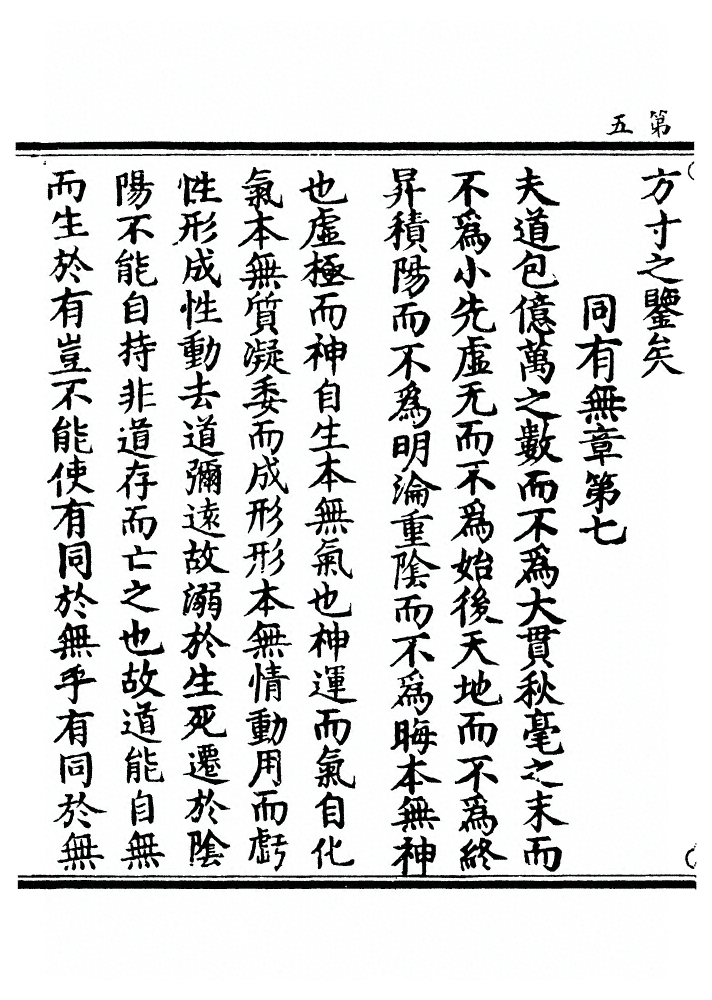 第五
方寸之鑒矣
同有無章第七
夫道包億萬之數而不爲大貫秋毫之末而
不爲小先虛无而不爲始後天地而不爲終
昇積陽而不爲明淪重陰而不爲晦本無神
也虛極而神自生本無氣也神運而氣自化
氣本無質凝委而成形形本無情動用而虧
性形成性動去道彌遠故溺於生死遷於陰
陽不能自持非道存而亡之也故道能自無
而生於有豈不能使有同於無乎有同於無